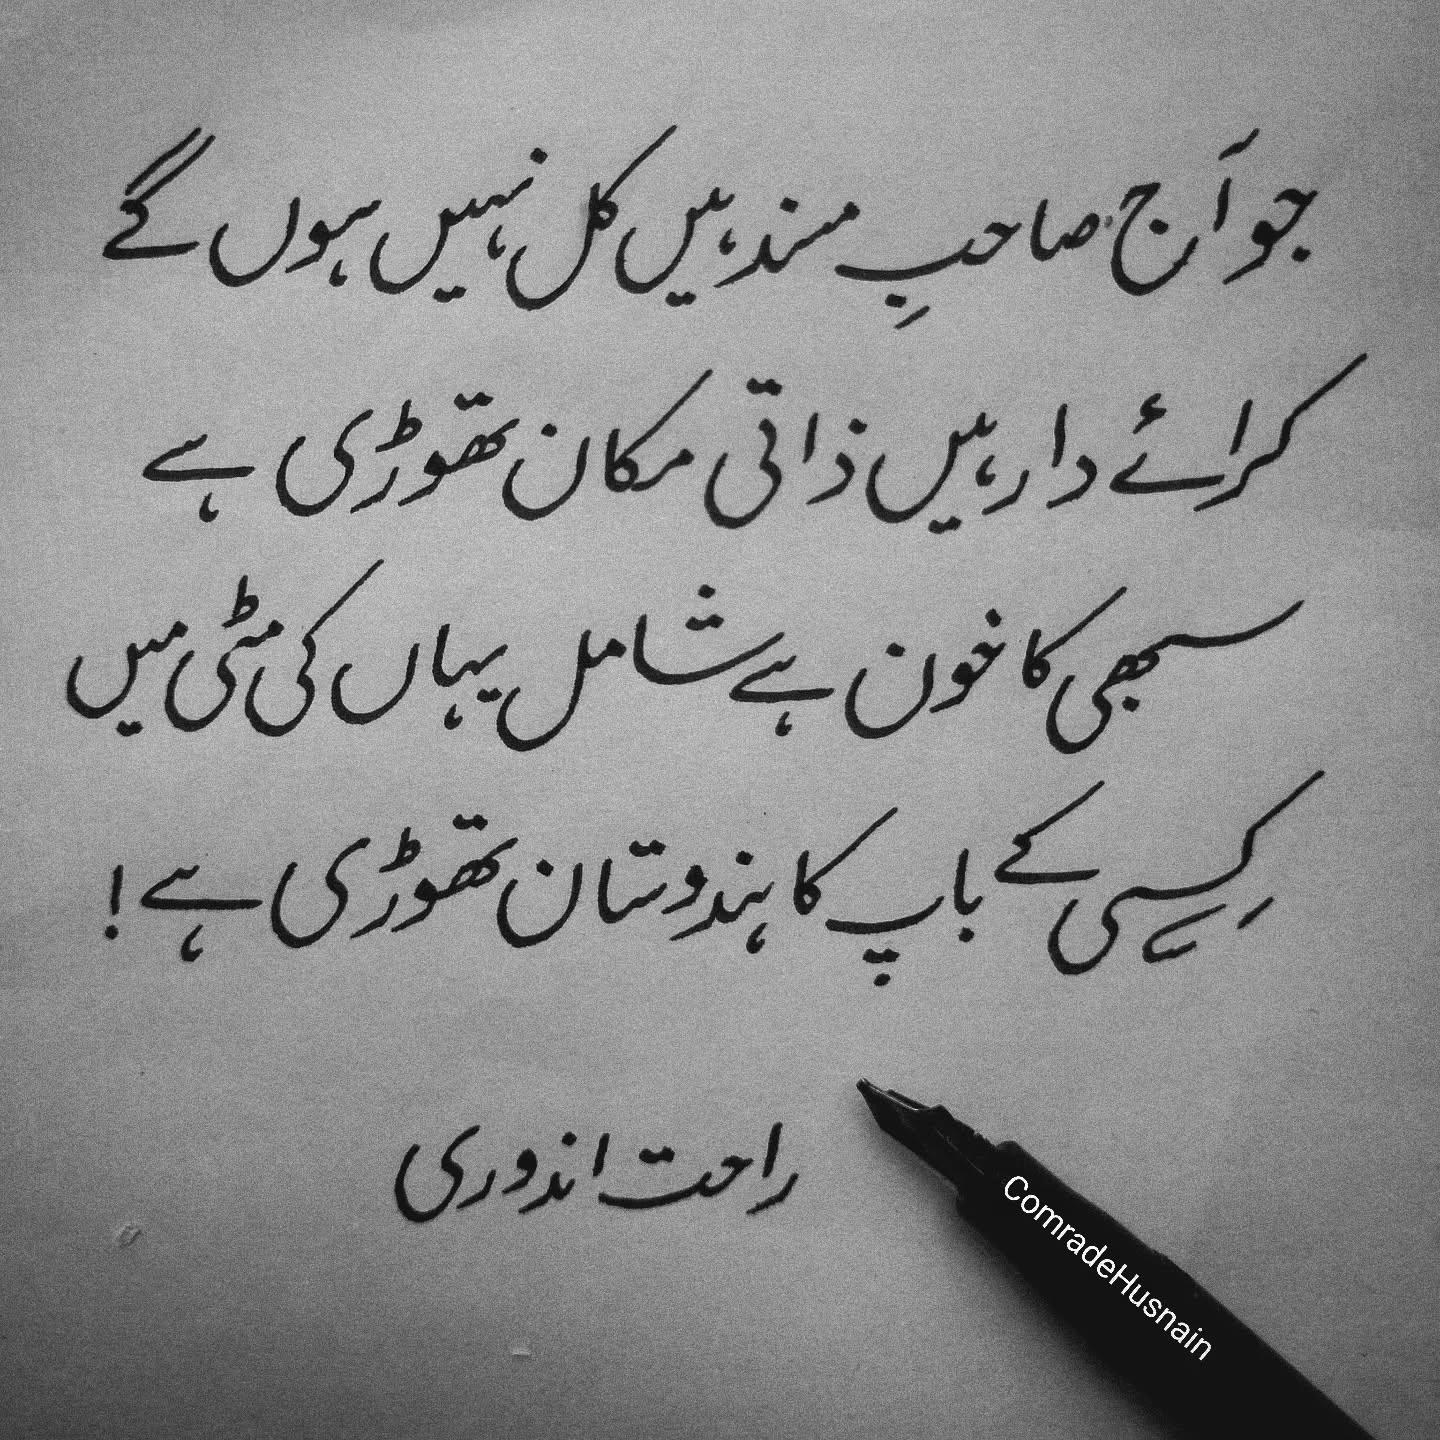 جو آج صاحبِ مسند ہیں کل نہیں ہوں گے
کرائے دار ہیں ذاتی مکان تھوڑی ہے
سبھی کا خون ہے شامل یہاں کی مٹی میں
کِسی کے باپ کا ہندوستان تھوڑی ہے !
راحت اندوری
ComradeHusnain